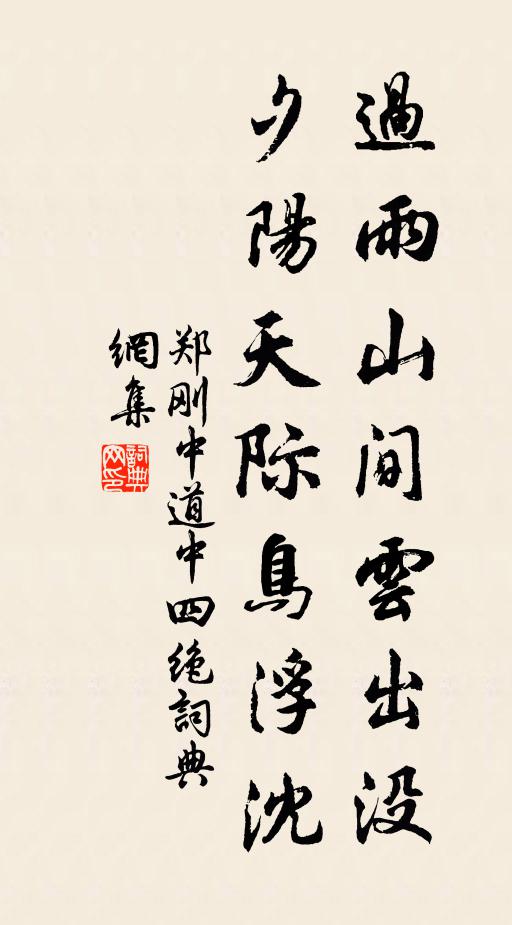 過雨山间雲出没
夕陽天际鳥浮沈
郑刚中道中四绝詞典
網集
詞典網印